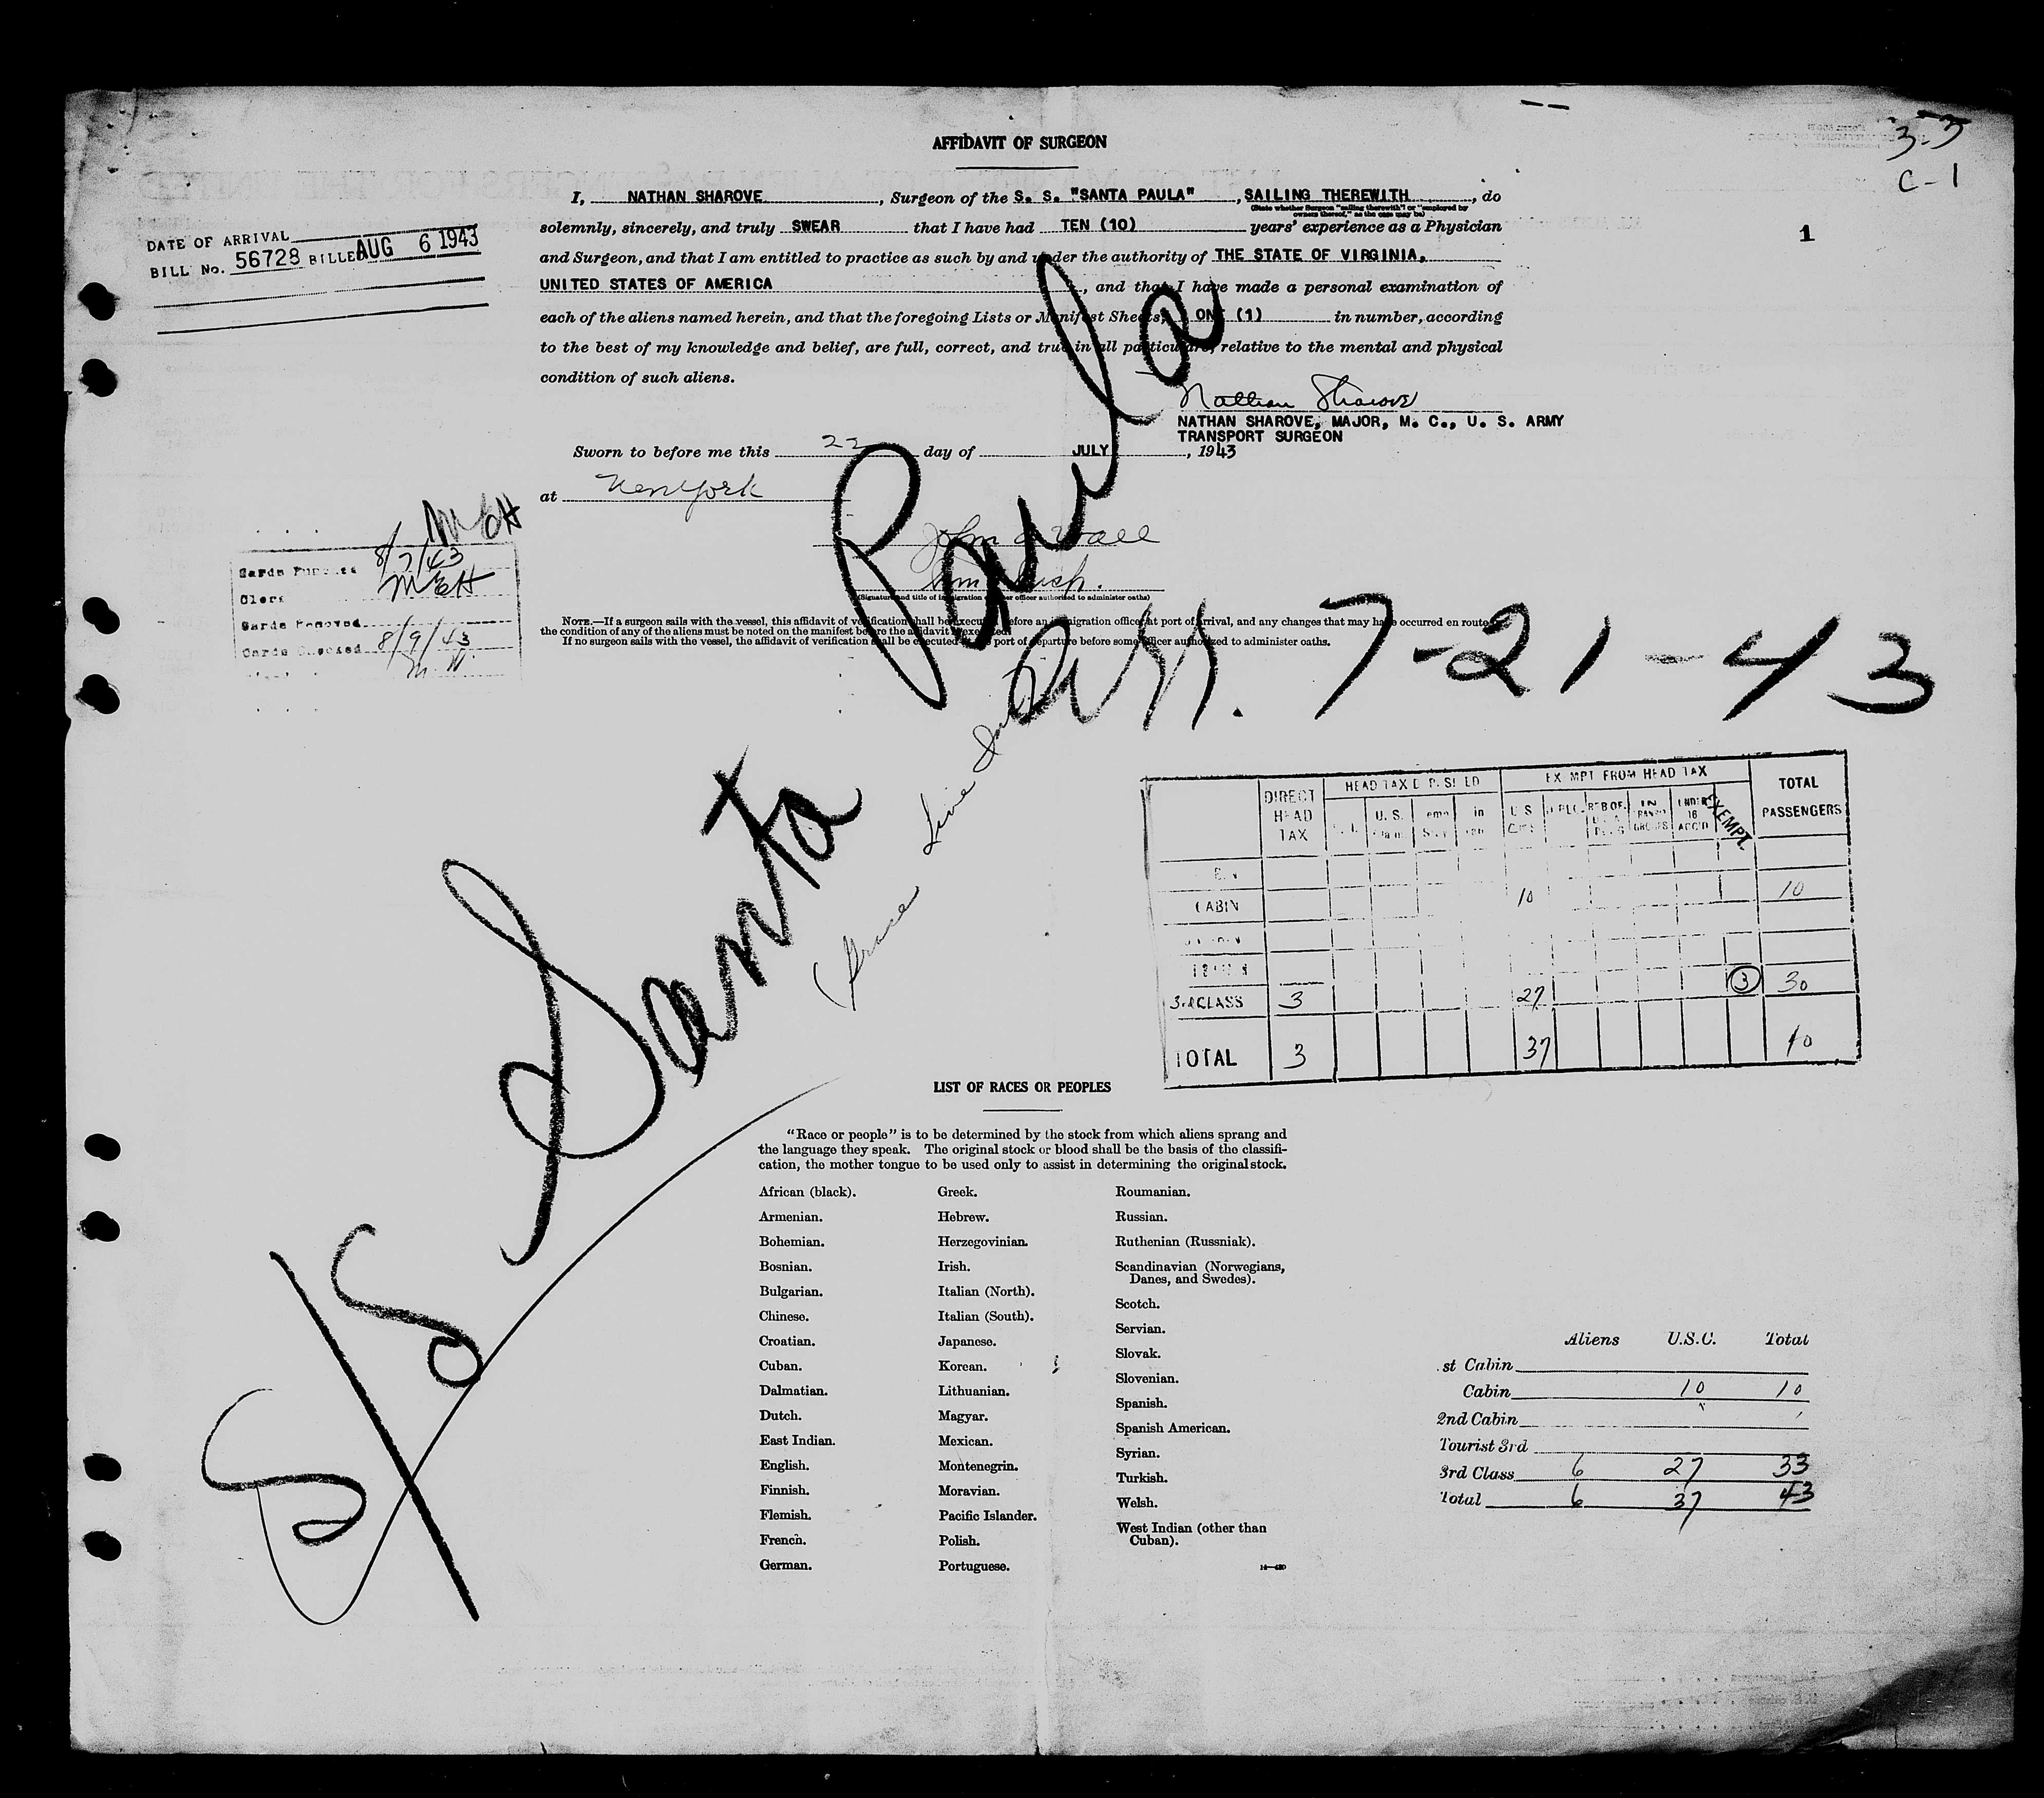 AFFIDAVIT OF SURGEON
3-3
C-1
1
I, NATHAN SHAROVE, Surgeon of the S. S. "SANTA PAULA", SAILING THEREWITH, do
(State whether Surgeon "sailing therewith" or "employed by
owners thereof," as the case may be)
solemnly, sincerely, and truly SWEAR that I have had TEN (10) years' experience as a Physician
and Surgeon, and that I am entitled to practice as such by and under the authority of THE STATE OF VIRGINIA,
UNITED STATES OF AMERICA, and that I have made a personal examination of
each of the aliens named herein, and that the foregoing Lists or Manifest Sheets, ONE (1) in number, according
to the best of my knowledge and belief, are full, correct, and true in all particulars, relative to the mental and physical
condition of such aliens.
DATE OF ARRIVAL
BILL No. 56728 BILLED AUG 6 1943
Nathan Sharove
NATHAN SHAROVE, MAJOR, M. C., U. S. ARMY
TRANSPORT SURGEON
Sworn to before me this 22 day of JULY, 1943
at New York
John Wall
Imm Insp.
(Signature and title of immigration or other officer authorized to administer oaths)
MEH
Cards Punched 8/7/43
Clerk MEH
Cards Removed
Cards Checked 8/9/43
NOTE.—If a surgeon sails with the vessel, this affidavit of verification shall be executed before an immigration officer at port of arrival, and any changes that may have occurred en route
the condition of any of the aliens must be noted on the manifest before the affidavit is executed.
If no surgeon sails with the vessel, the affidavit of verification shall be executed at the port of departure before some officer authorized to administer oaths.
S/S Santa Paula
Arr. 7-21-43
(Grace Line
DIRECT HEAD TAX
EXEMPT FROM HEAD TAX
TOTAL PASSENGERS
EXEMPT.
CABIN 10 10
3rd CLASS 3 27 3 30
TOTAL 3 37 10
LIST OF RACES OR PEOPLES
"Race or people" is to be determined by the stock from which aliens sprang and
the language they speak. The original stock or blood shall be the basis of the classifi-
cation, the mother tongue to be used only to assist in determining the original stock.
African (black).
Armenian.
Bohemian.
Bosnian.
Bulgarian.
Chinese.
Croatian.
Cuban.
Dalmatian.
Dutch.
East Indian.
English.
Finnish.
Flemish.
French.
German.
Greek.
Hebrew.
Herzegovinian.
Irish.
Italian (North).
Italian (South).
Japanese.
Korean.
Lithuanian.
Magyar.
Mexican.
Montenegrin.
Moravian.
Pacific Islander.
Polish.
Portuguese.
Roumanian.
Russian.
Ruthenian (Russniak).
Scandinavian (Norwegians,
Danes, and Swedes).
Scotch.
Servian.
Slovak.
Slovenian.
Spanish.
Spanish American.
Syrian.
Turkish.
Welsh.
West Indian (other than
Cuban).
Aliens U.S.C. Total
st Cabin
Cabin 10 10
2nd Cabin
Tourist 3rd
3rd Class 6 27 33
Total 6 37 43